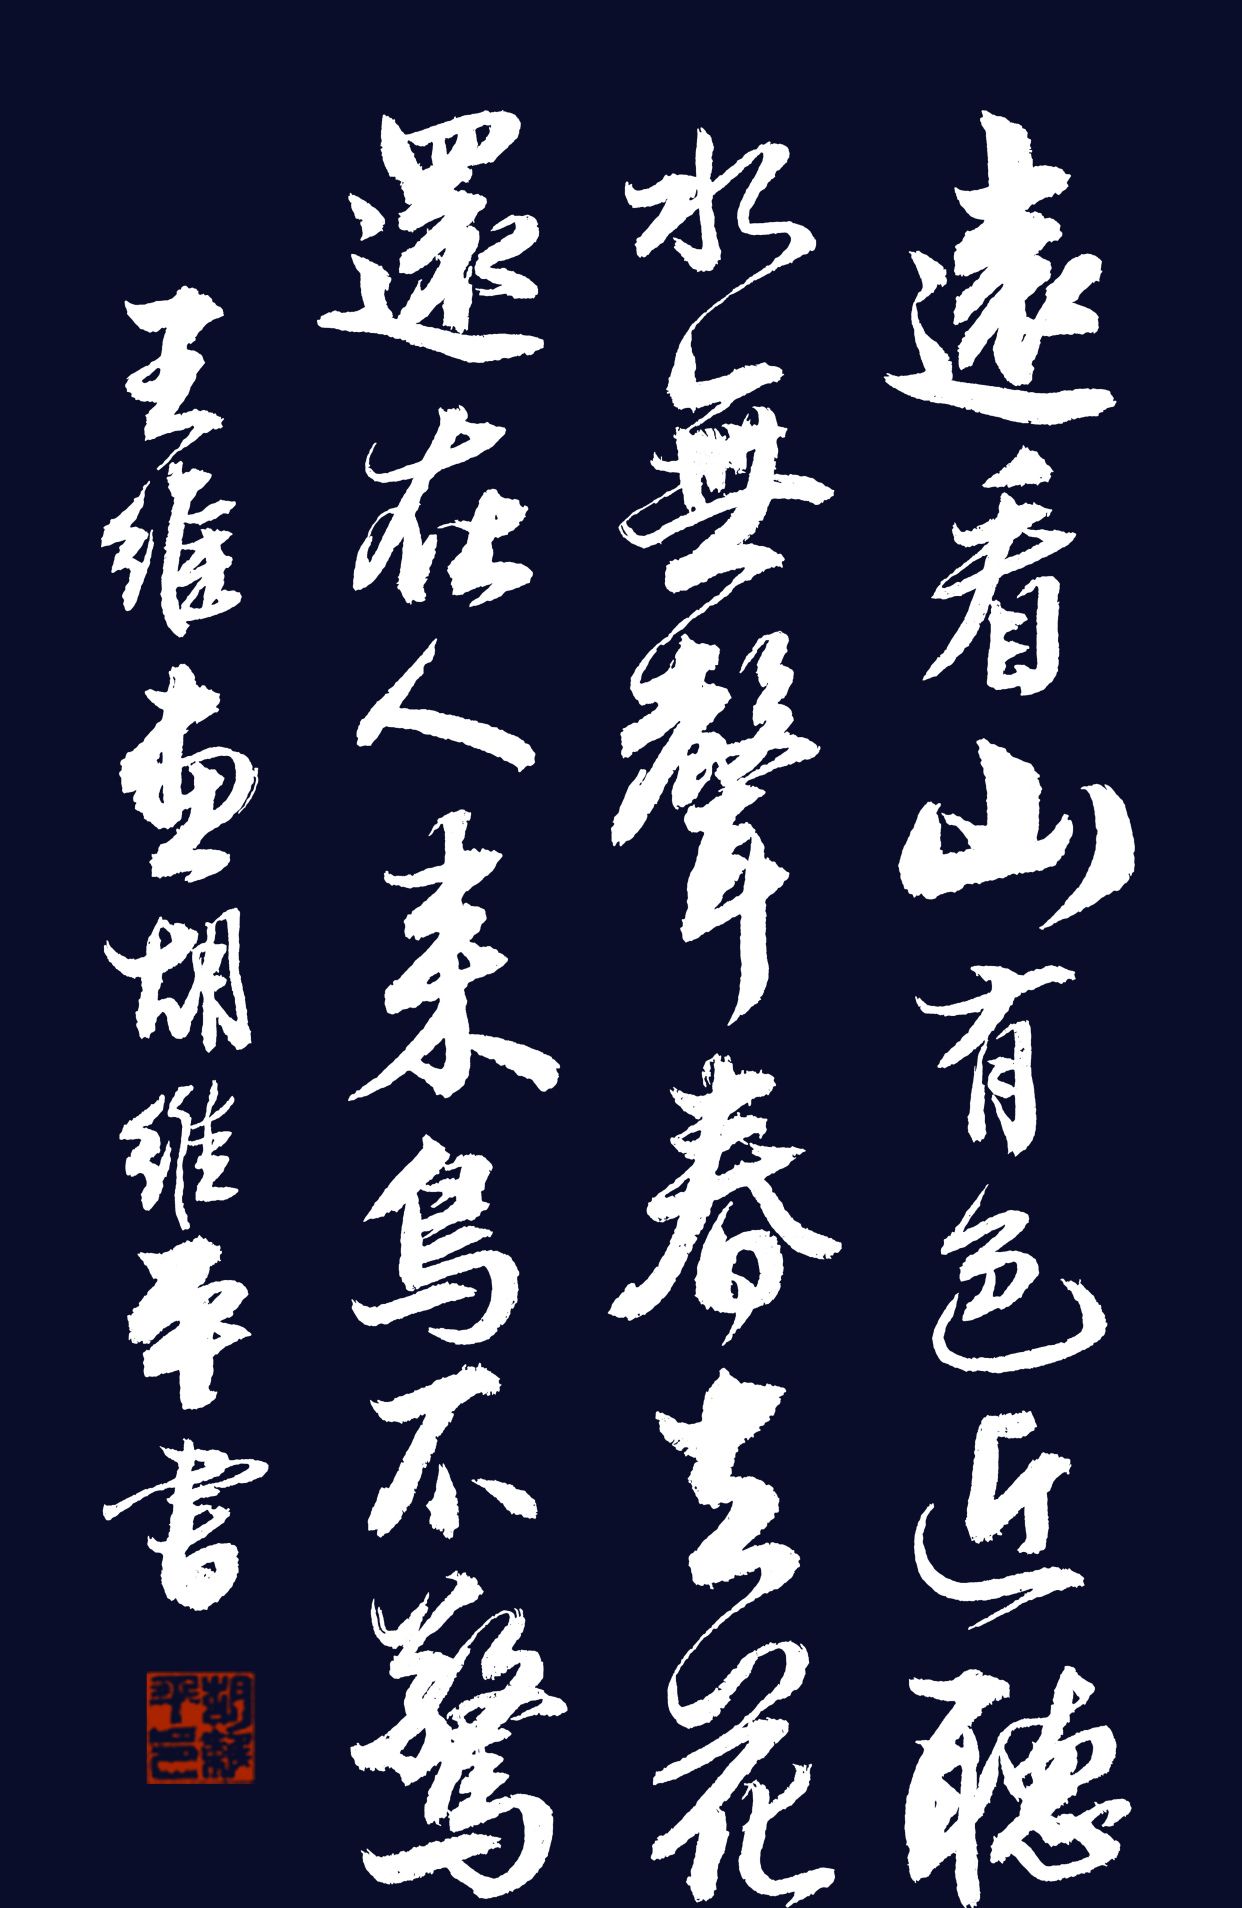 遠看山有色近聽
水無聲春去花
還在人来鳥不驚
王維画胡維平書
胡維平印